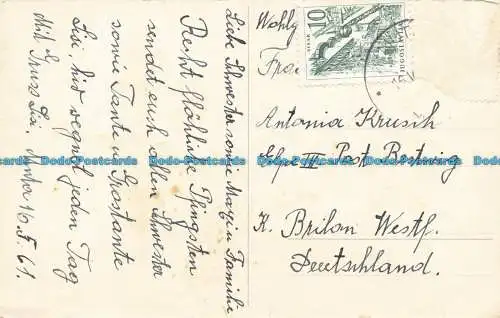 Liebe Schwester sowie Mazi u Familie
Recht fröhliche Pfingsten
sendet euch allen Schwester
sowie Tante u Grostante
Lisi hir regnet jeden Tag
Mit Gruss Lisi.
16.5.61.
10
Wohlg
Fra
Antonia Krusch
Elpe III Post Bestwig
K. Brilon Westf.
Deutschland.
Dodo Postcards Dodo Postcards Dodo Postcards Dodo Postcards